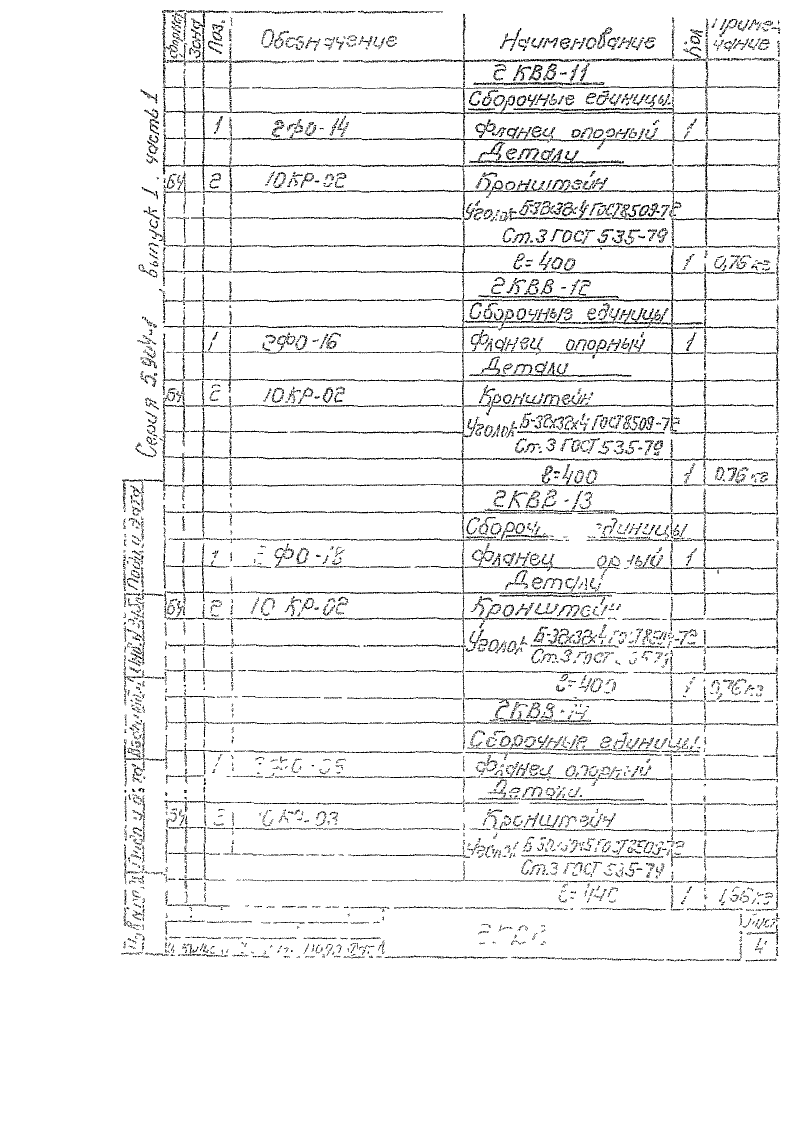 Серия 5.904- выпуск 1. часть 1
формат Зона Поз. Обозначение Наименование Кол Приме-
чание
2КВВ-11
Сборочные единицы
1 2ФО-14 Фланец опорный 1
Детали
БЧ 2 10КР-02 Кронштейн
Уголок Б-32х32х4 ГОСТ 8509-72
Ст.3 ГОСТ 535-79
l=400 1 0,76 кг
2КВВ-12
Сборочные единицы
1 2ФО-16 Фланец опорный 1
Детали
БЧ 2 10КР-02 Кронштейн
Уголок Б-32х32х4 ГОСТ 8509-72
Ст.3 ГОСТ 535-79
l=400 1 0.76 кг
2КВВ-13
Сбороч. единицы
1 2ФО-18 Фланец 1
Детали
БЧ 2 10 КР-02 Кронштейн
Уголок Б-32х32х4 ГОСТ -72
Ст.3 ГОСТ
l=400 1 0,76 кг
2КВВ-14
Сборочные единицы
1 ФО- Фланец опорный
Детали
КР-03 Кронштейн
Уголок Б ГОСТ 8509-72
Ст.3 ГОСТ 535-79
1
Подп. и дата
Лист
4